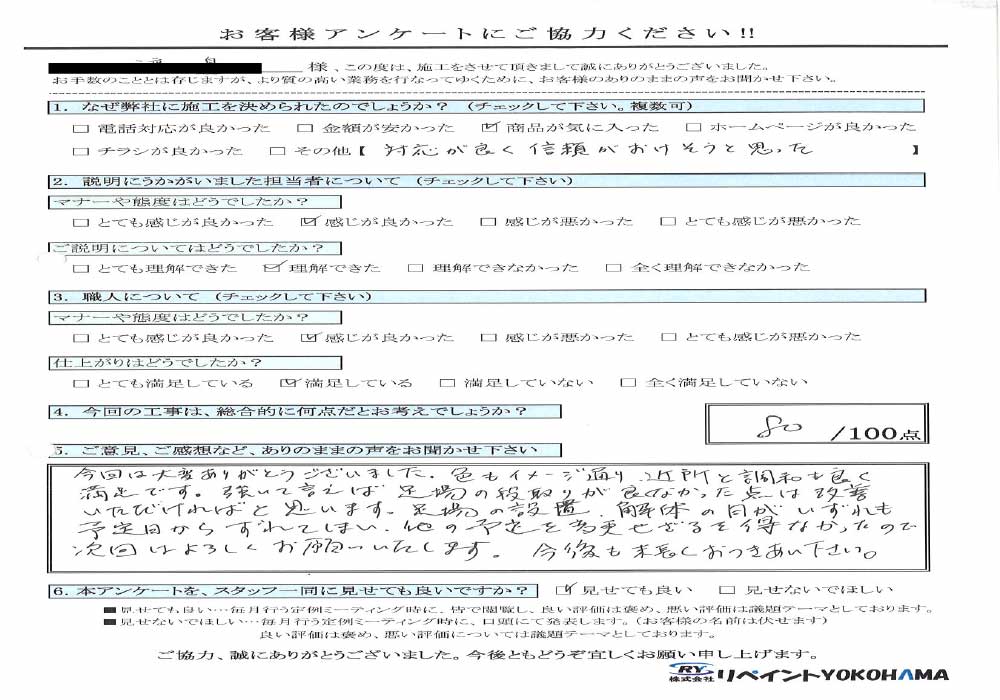 お客様アンケートにご協力ください!!
様、この度は、施工をさせて頂きまして誠にありがとうございました。
お手数のこととは存じますが、より質の高い業務を行なってゆくために、お客様のありのままの声をお聞かせ下さい。
1. なぜ弊社に施工を決められたのでしょうか? (チェックして下さい。複数可)
□ 電話対応が良かった □ 金額が安かった ☑ 商品が気に入った □ ホームページが良かった
□ チラシが良かった □ その他【 対応が良く信頼がおけそうと思った 】
2. 説明にうかがいました担当者について (チェックして下さい)
マナーや態度はどうでしたか?
□ とても感じが良かった ☑ 感じが良かった □ 感じが悪かった □ とても感じが悪かった
ご説明についてはどうでしたか?
□ とても理解できた ☑ 理解できた □ 理解できなかった □ 全く理解できなかった
3. 職人について (チェックして下さい)
マナーや態度はどうでしたか?
□ とても感じが良かった ☑ 感じが良かった □ 感じが悪かった □ とても感じが悪かった
仕上がりはどうでしたか?
□ とても満足している ☑ 満足している □ 満足していない □ 全く満足していない
4. 今回の工事は、総合的に何点だとお考えでしょうか?
80 /100点
5. ご意見、ご感想など、ありのままの声をお聞かせ下さい
今回は大変ありがとうございました。色もイメージ通り、近所と調和も良く
満足です。強いて言えば足場の段取りが良くなかった点は改善
いただければと思います。足場の設置、解体の日がいずれも
予定日からずれてしまい、他の予定を変更せざるを得なかったので
次回はよろしくお願いいたします。 今後も末長くおつきあい下さい。
6. 本アンケートを、スタッフ一同に見せても良いですか? ☑ 見せても良い □ 見せないでほしい
■見せても良い…毎月行う定例ミーティング時に、皆で閲覧し、良い評価は褒め、悪い評価は議題テーマとしております。
■見せないでほしい…毎月行う定例ミーティング時に、口頭にて発表します。(お客様の名前は伏せます)
良い評価は褒め、悪い評価については議題テーマとしております。
ご協力、誠にありがとうございました。今後ともどうぞ宜しくお願い申し上げます。
RY 株式会社リペイントYOKOHAMA